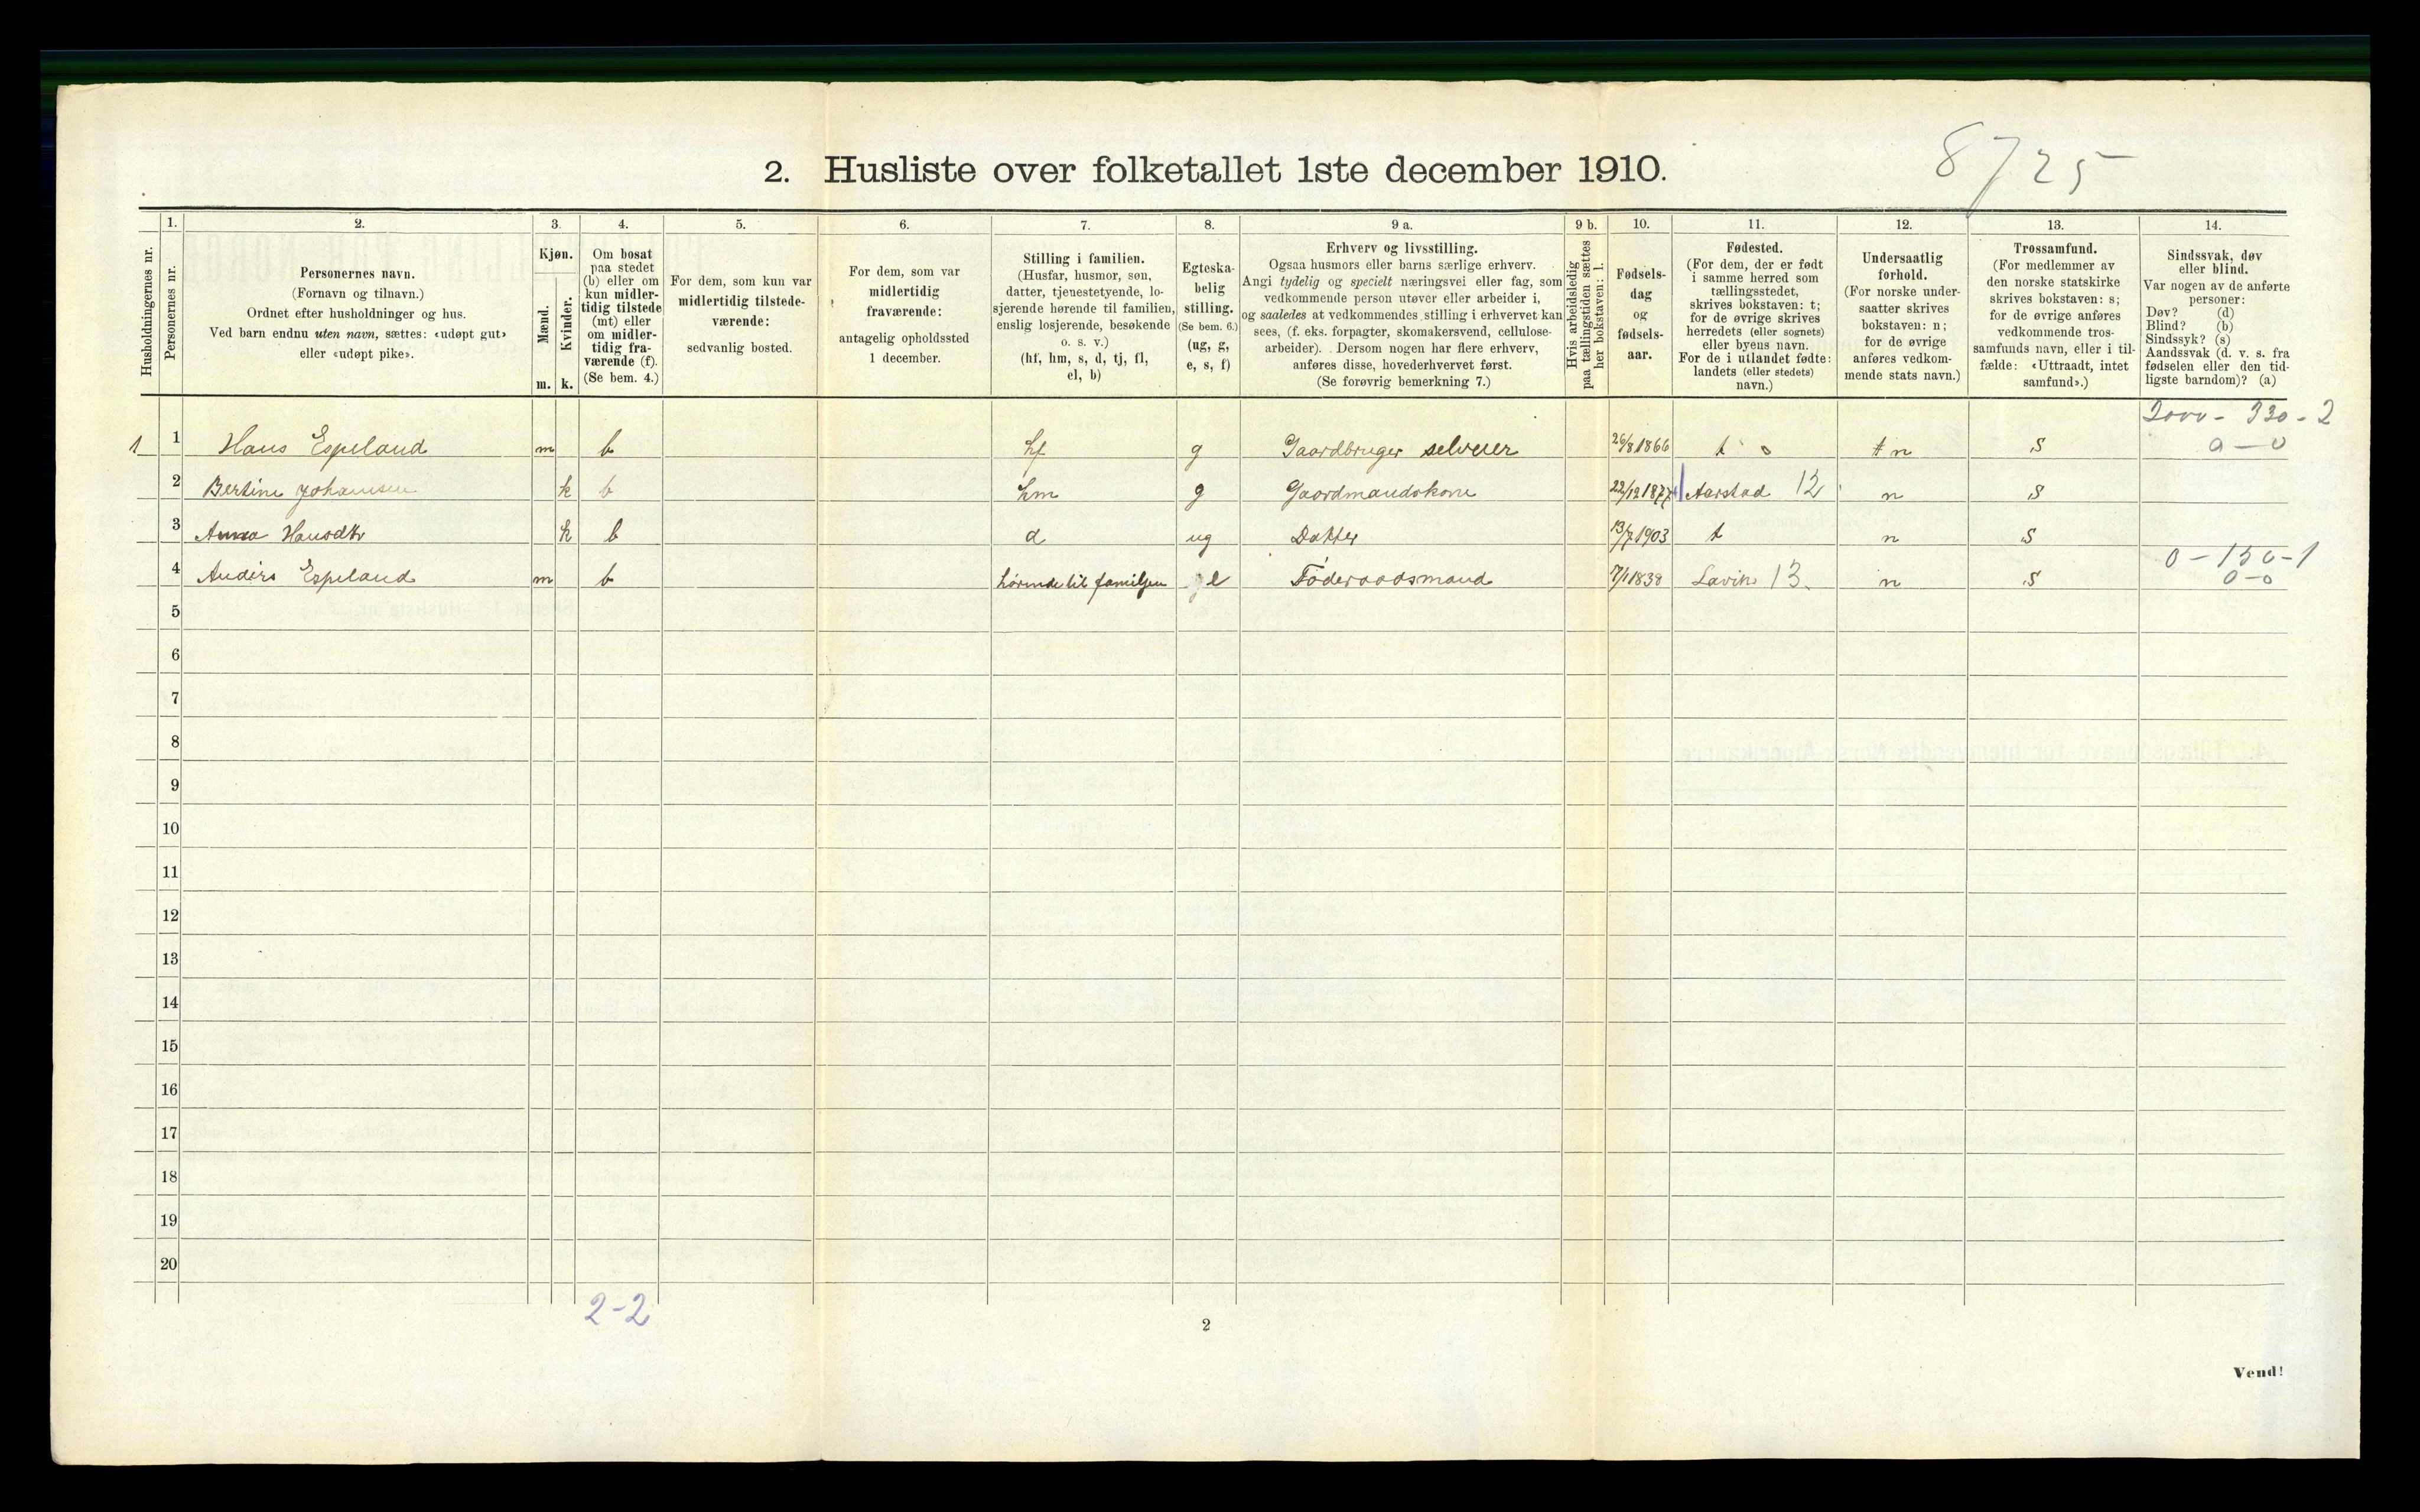 8725
2. Husliste over folketallet 1ste december 1910.
Husholdningernes nr.
1.
Personernes nr.
2.
Personernes navn.
(Fornavn og tilnavn.)
Ordnet efter husholdninger og hus.
Ved barn endnu uten navn, sættes: «udøpt gut»
eller «udøpt pike».
3.
Kjøn.
Mænd.
Kvinder.
m. k.
4.
Om bosat
paa stedet
(b) eller om
kun midler-
tidig tilstede
(mt) eller
om midler-
tidig fra-
værende (f).
(Se bem. 4.)
5.
For dem, som kun var
midlertidig tilstede-
værende:
sedvanlig bosted.
6.
For dem, som var
midlertidig
fraværende:
antagelig opholdssted
1 december.
7.
Stilling i familien.
(Husfar, husmor, søn,
datter, tjenestetyende, lo-
sjerende hørende til familien,
enslig losjerende, besøkende
o. s. v.)
(hf, hm, s, d, tj, fl,
el, b)
8.
Egteska-
belig
stilling.
(Se bem. 6.)
(ug, g,
e, s, f)
9 a.
Erhverv og livsstilling.
Ogsaa husmors eller barns særlige erhverv.
Angi tydelig og specielt næringsvei eller fag, som
vedkommende person utøver eller arbeider i,
og saaledes at vedkommendes stilling i erhvervet kan
sees, (f. eks. forpagter, skomakersvend, cellulose-
arbeider). Dersom nogen har flere erhverv,
anføres disse, hovederhvervet først.
(Se forøvrig bemerkning 7.)
9 b.
Hvis arbeidsledig
paa tællingstiden sættes
her bokstaven: l.
10.
Fødsels-
dag
og
fødsels-
aar.
11.
Fødested.
(For dem, der er født
i samme herred som
tællingsstedet,
skrives bokstaven: t;
for de øvrige skrives
herredets (eller sognets)
eller byens navn.
For de i utlandet fødte:
landets (eller stedets)
navn.)
12.
Undersaatlig
forhold.
(For norske under-
saatter skrives
bokstaven: n;
for de øvrige
anføres vedkom-
mende stats navn.)
13.
Trossamfund.
(For medlemmer av
den norske statskirke
skrives bokstaven: s;
for de øvrige anføres
vedkommende tros-
samfunds navn, eller i til-
fælde: «Uttraadt, intet
samfund».)
14.
Sindssvak, døv
eller blind.
Var nogen av de anførte
personer:
Døv? (d)
Blind? (b)
Sindssyk? (s)
Aandssvak (d. v. s. fra
fødselen eller den tid-
ligste barndom)? (a)
330 - 2
1 1 Hans Espeland m b hf g Gaardbruger selveier 26/8 1866 t n s 0 - 0
2 Bertine Johansen k b hm g Gaardmandskone 22/12 1877 Aarstad 12 n s
3 Anna Hansdtr k b d ug Datter 13/7 1903 t n s
0 - 150 - 1
4 Anders Espeland m b hörende til familjen e Föderaadsmand 7/1 1838 Lavik 13 n s 0 - 0
5
6
7
8
9
10
11
12
13
14
15
16
17
18
19
20
2-2
2
Vend!